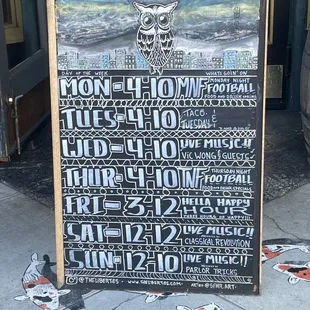 DAY OF THE WEEK WHATS GOIN' ON
MON-4-10 MNF MONDAY NIGHT
FOOTBALL
FOOD AND DRINK SPECIALS
TUES-4-10 TACO
TUESDAY
WED-4-10 LIVE MUSIC!!
VIC WONG & GUESTS
THUR-4-10 TNF THURSDAY NIGHT
FOOTBALL
FOOD AND DRINK SPECIALS
FRI-3-12 HELLA HAPPY
HOUR
THREE HOURS OF HAPPY!!!
SAT-12-12 LIVE MUSIC!!
CLASSICAL REVOLUTION
SUN-12-10 LIVE MUSIC!!
PARLOR TRICKS